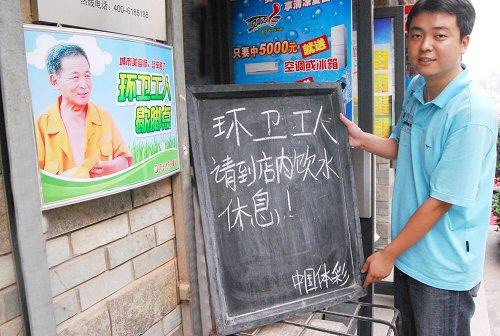 热线电话：400-6185188
环卫工人
歇脚点
只要中5000元 就送
空调或冰箱
环卫工人
请到店内饮水
休息！！
中国体彩